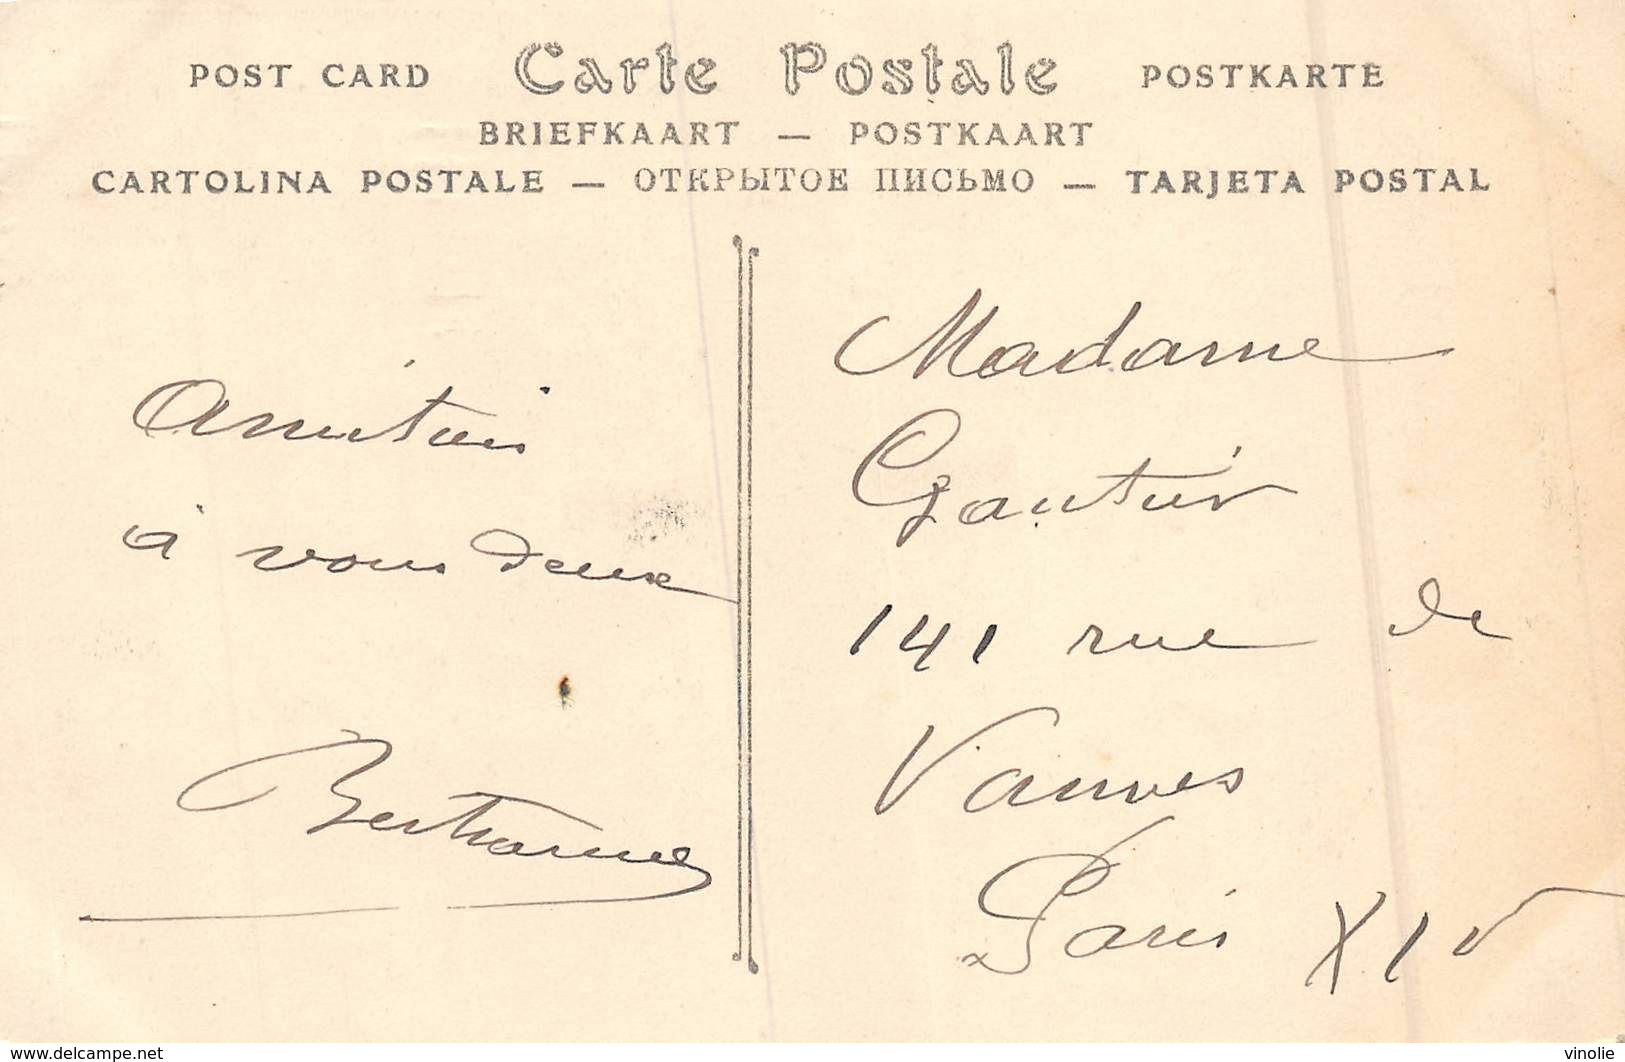 POST CARD Carte Postale POSTKARTE
BRIEFKAART — POSTKAART
CARTOLINA POSTALE — ОТКРЫТОЕ ПИСЬМО — TARJETA POSTAL
Amitiés
à vous deux
Madame
Gautier
141 rue de
Vanves
Paris XIV
www.delcampe.net
vinolie